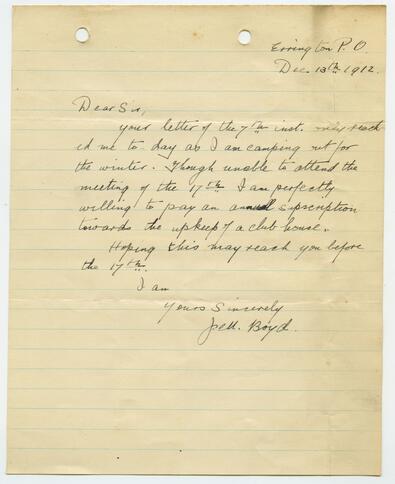 Errington P.O.
Dec. 13th 1912.
Dear Sir,
your letter of the 7th inst. only reach
ed me to-day as I am camping out for
the winter. Though unable to attend the
meeting of the 17th I am perfectly
willing to pay an annual supscription
towards the upkeep of a club house.
Hoping this may reach you before
the 17th.
I am
Yours Sincerely
Boyd.